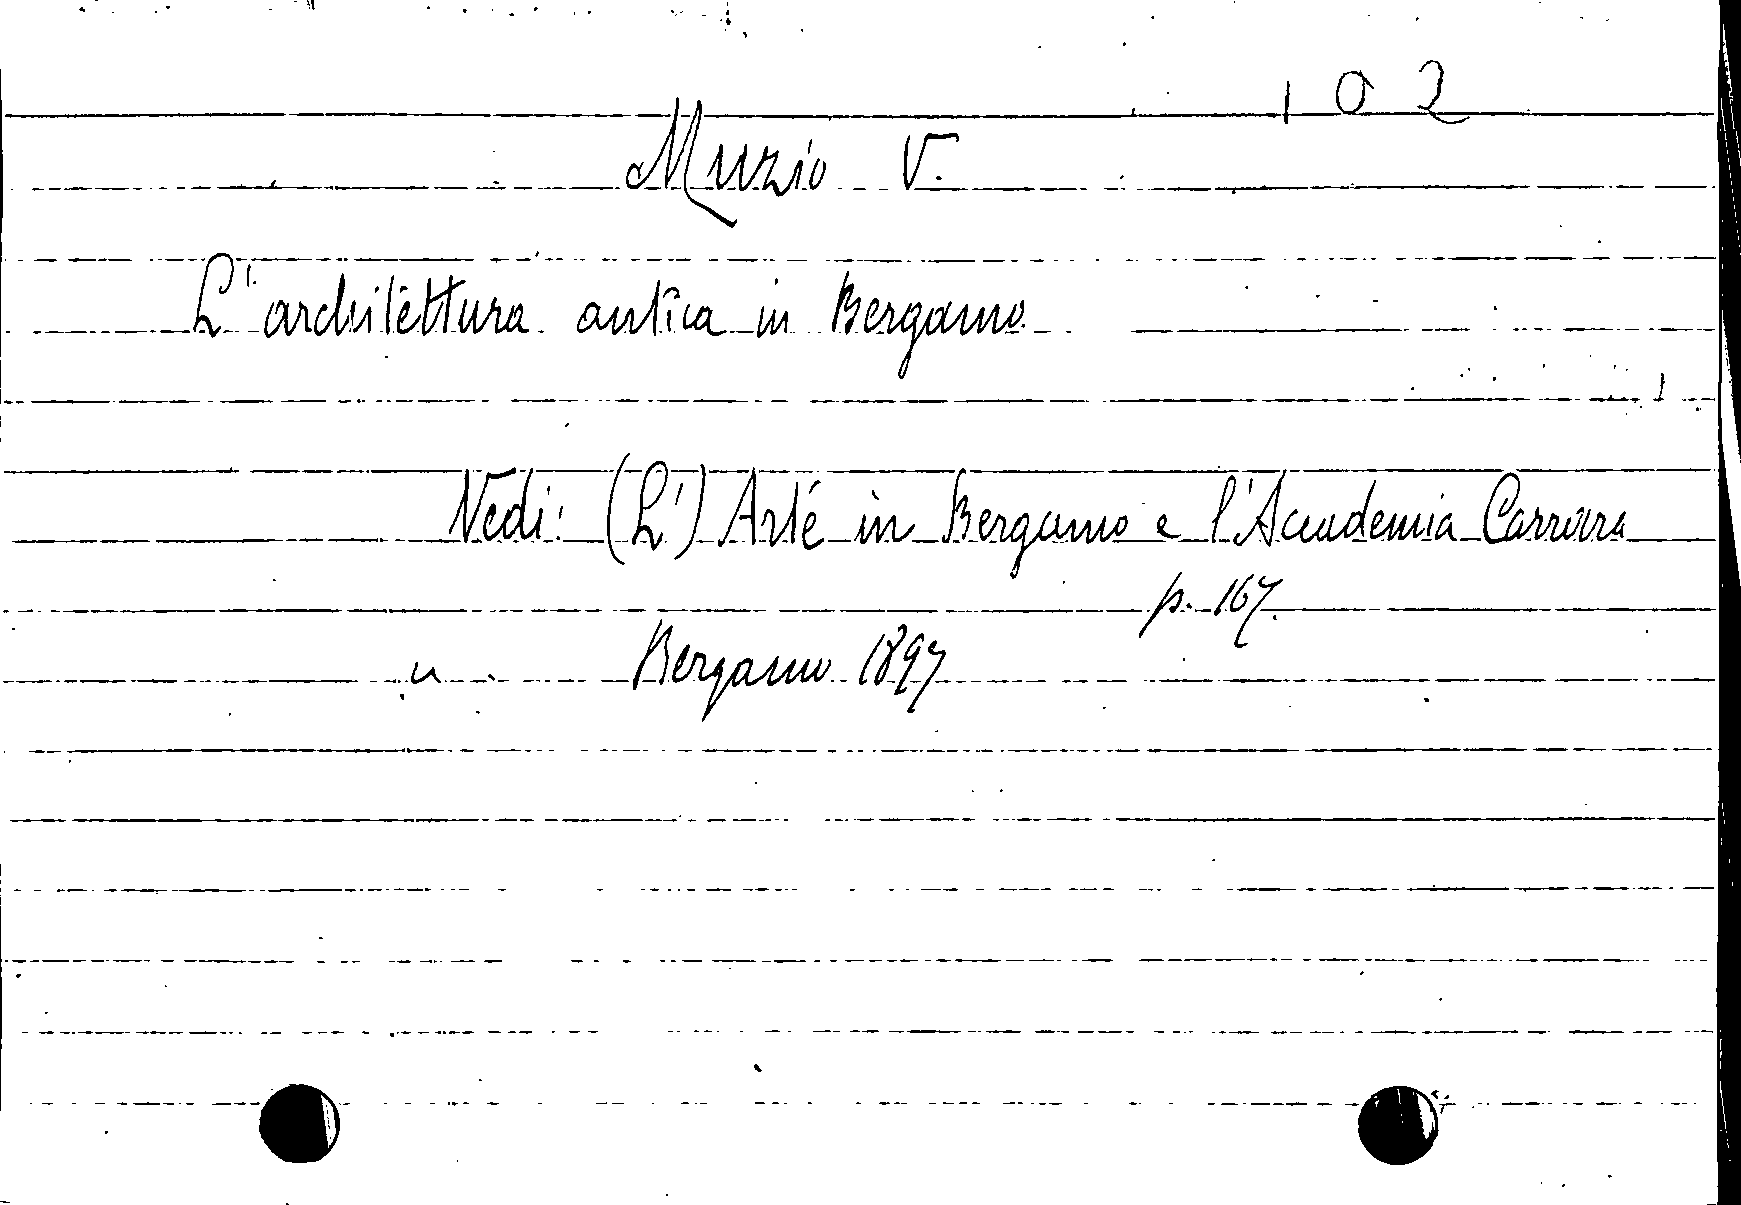 102
Muzio V.
L'architettura antica in Bergamo
Vedi: (L') Arte in Bergamo e l'Accademia Carrara
p. 167.
Bergamo 1897